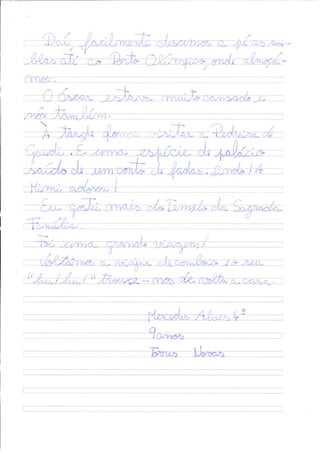 Daí, facilmente descemos a pé as ram-
blas até ao Porto Olímpico, onde almoçá-
mos.
O Óscar estava muito cansado e
nós também.
À tarde fomos visitar a Pedreira de
Gaudi. É uma espécie de palácio
saído de um conto de fadas. Lindo! A
Mimi adorou!
Eu gostei mais do Templo da Sagrada
Família.
Foi uma grande viagem!
Voltámos a viajar de comboio e o seu
trouxe-nos de volta a casa.
Mercedes Alves 4º
9 anos
Torres Novas